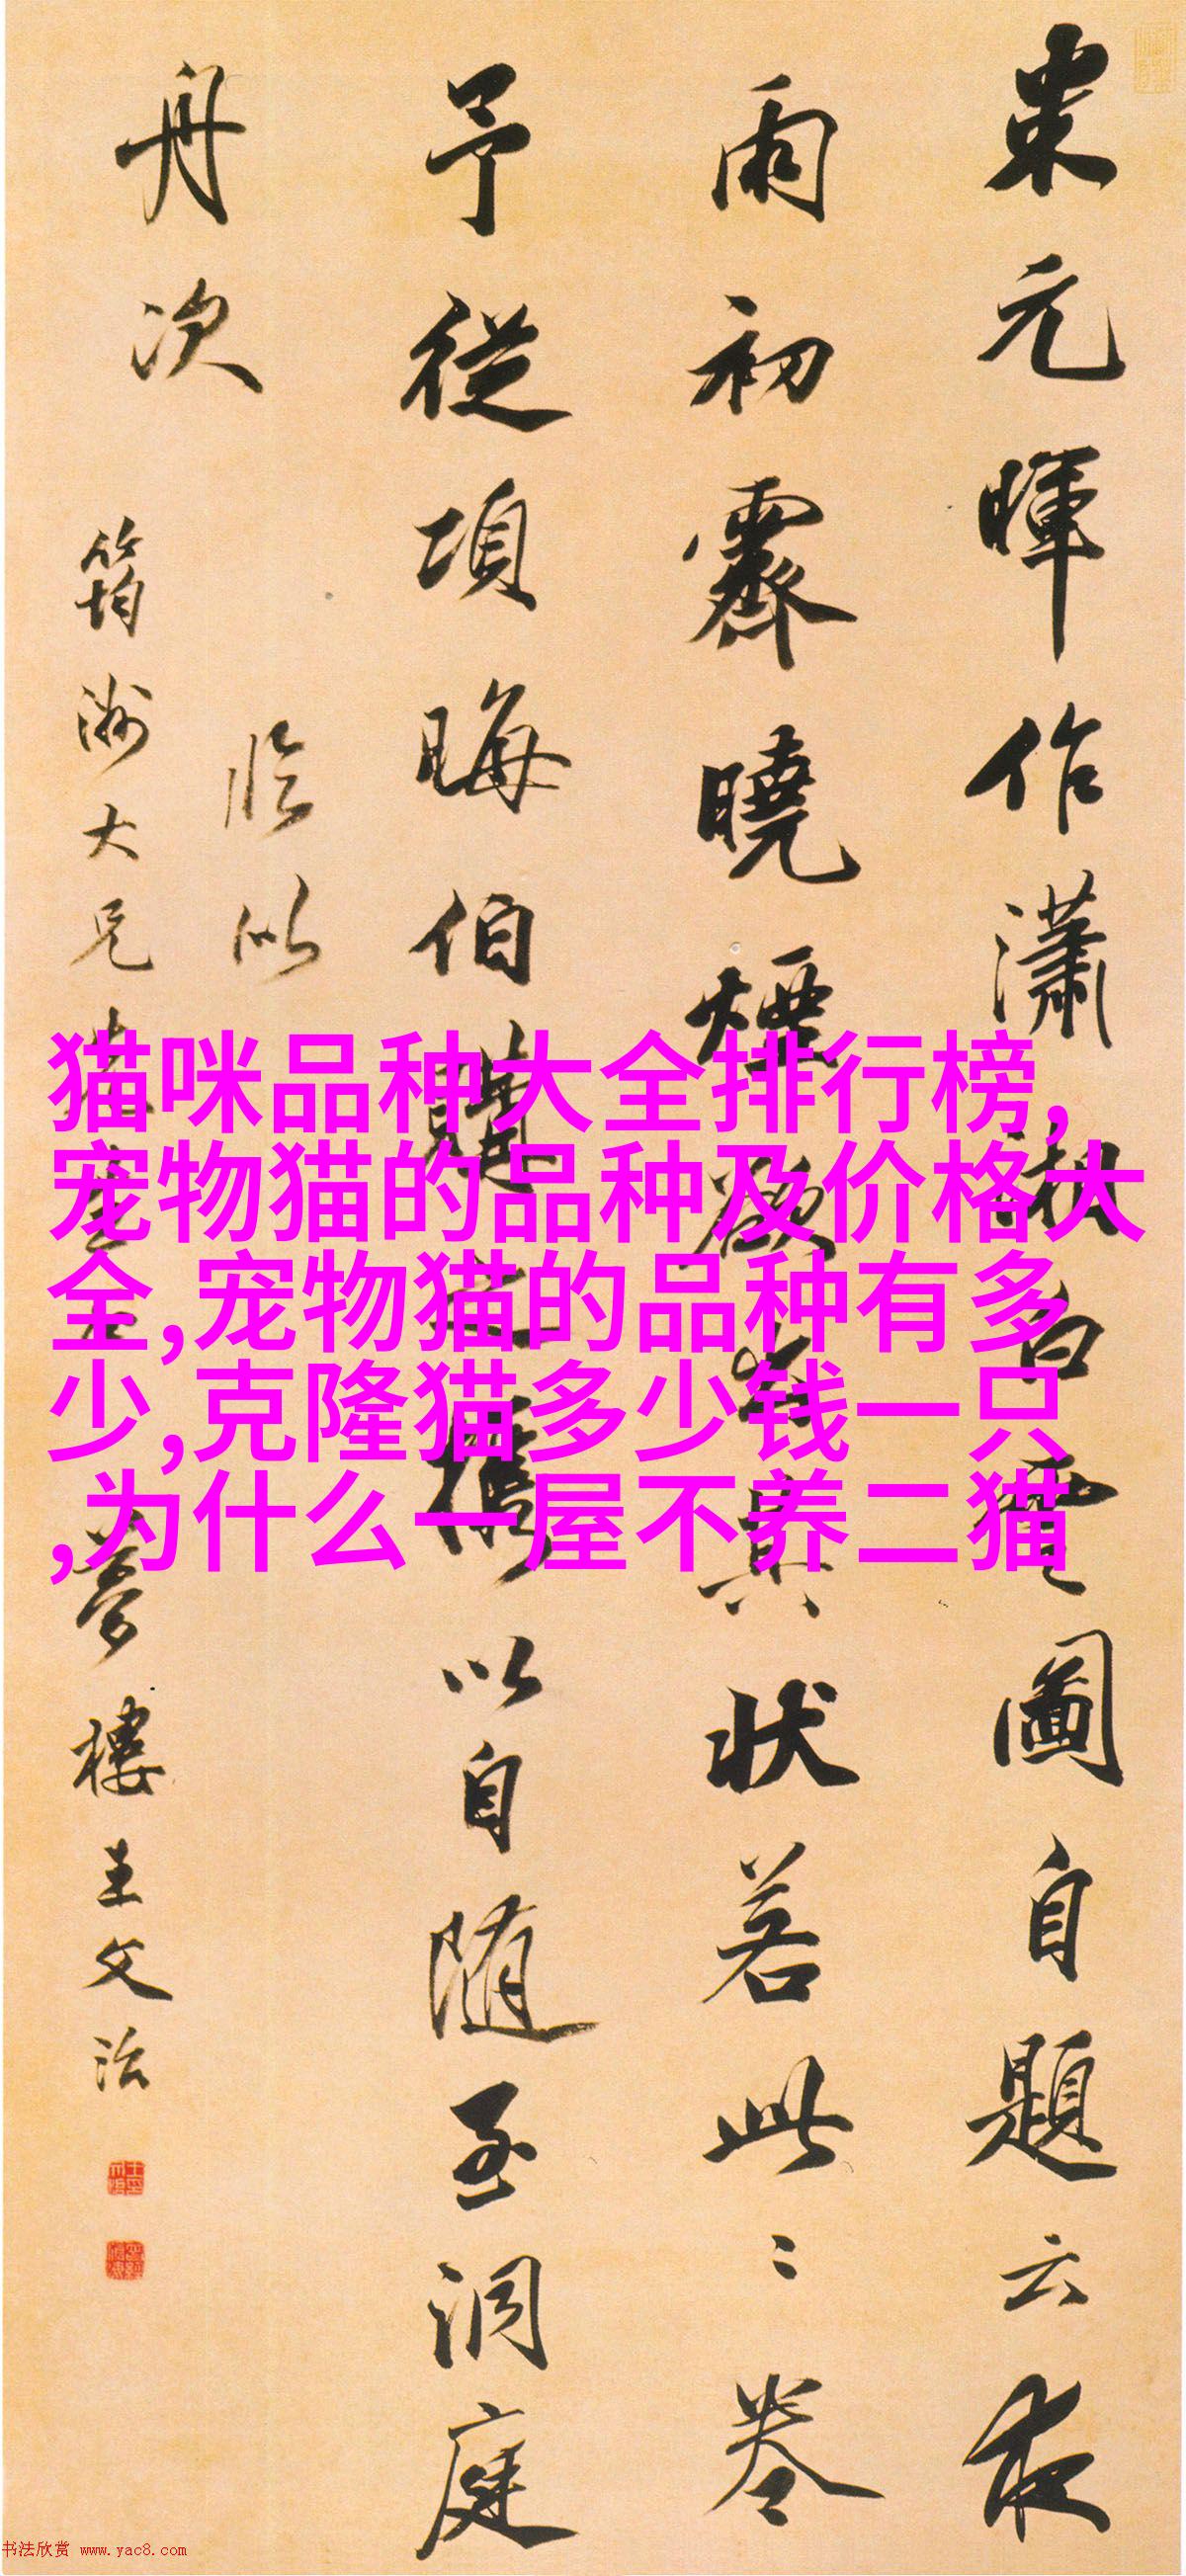 米元暉作瀟湘白雲圖自題云夜
雨初霽曉煙欲出其狀若此此卷
予從項晦伯購之携以自隨至洞庭
舟次
临似
筠洲大兄
夢樓王文治
猫咪品种大全排行榜,
宠物猫的品种及价格大
全,宠物猫的品种有多
少,克隆猫多少钱一只
,为什么一屋不养二猫
书法欣赏 www.yac8.com